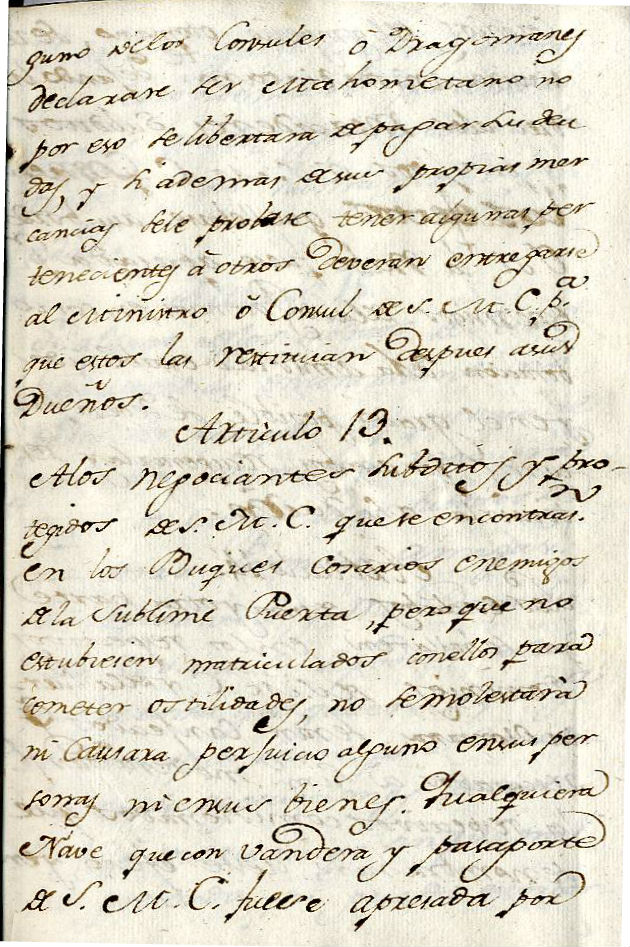 guno delos Consules ô Dragomanes
declarase ser Mahometano no
por eso se libertara de pagar sus deu
das, y si ademas de sus propias mer
cancias sele probase tener algunas per
tenecientes â otros deveran entregarse
al Ministro ô Consul de S. M. C. p.a
que estos las restituian despues asus
Dueños.
Articulo 13.
Alos negociantes subditos y pro-
tegidos de S. M. C. que se encontras.n
en los Buques Cosarios enemigos
de la Sublime Puerta, pero que no
estubiesen matriculados con ellos para
cometer ostilidades, no semolestarà
ni Causara perjuicio alguno ensus per
sonas ni ensus bienes. Qualquiera
Nave que con vandera y pasaporte
de S. M. C. fuese apresada por